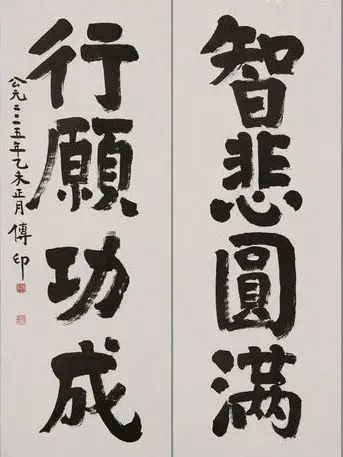 智悲圓滿
行願功成
公元二〇一五年乙未正月 傳印